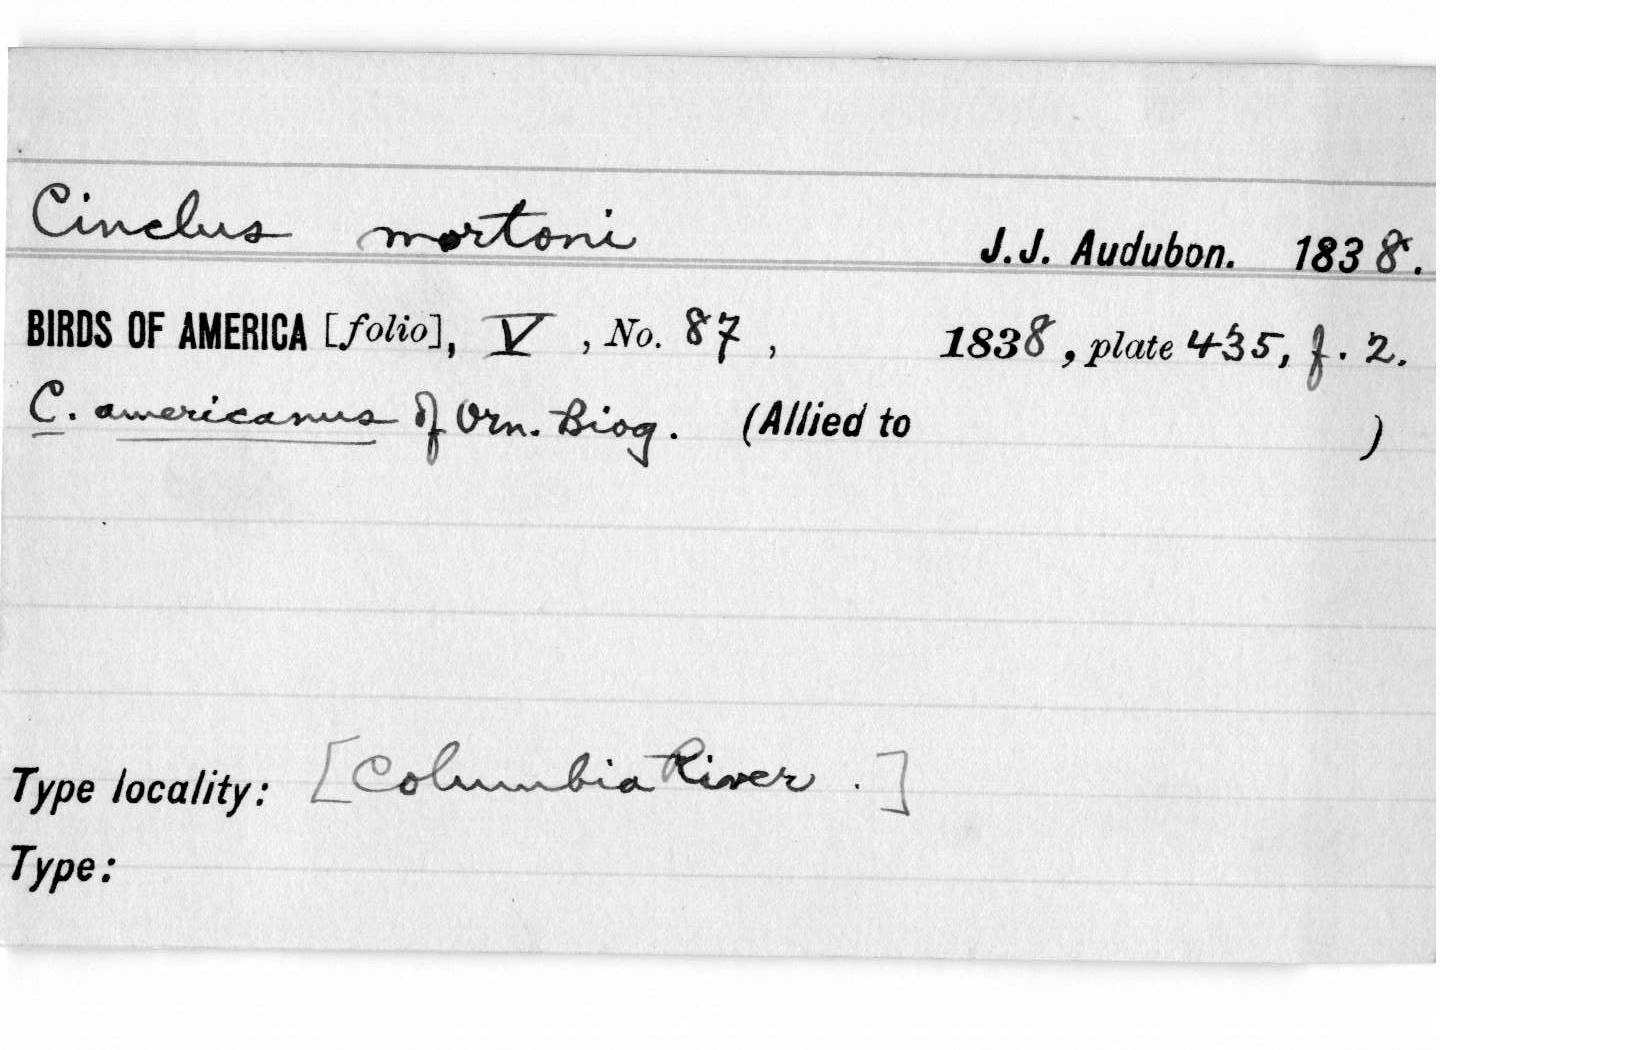 Cinclus mortoni J.J. Audubon. 1838.
BIRDS OF AMERICA [folio], V, No. 87, 1838, plate 435, f. 2.
C. americanus of Orn. Biog. (Allied to )
Type locality: [Columbia River.]
Type: